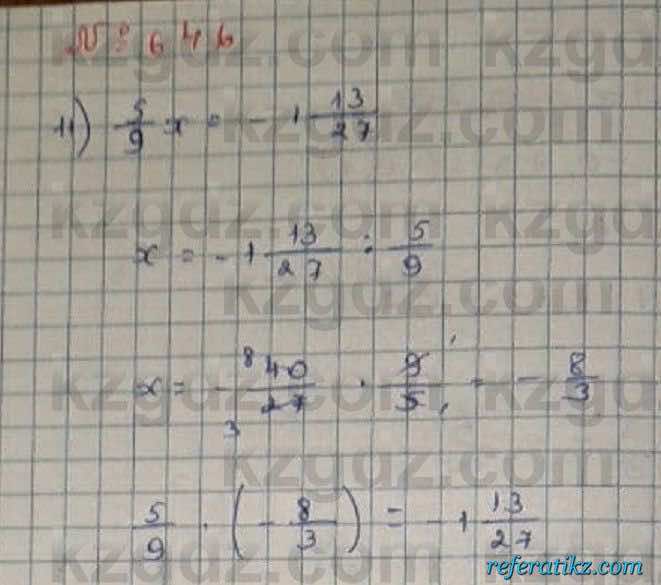 № 646
1) 5/9 x = - 1 13/27
x = - 1 13/27 : 5/9
x = - 40/27 · 9/5 = - 8/3
5/9 · (- 8/3) = - 1 13/27
kzgdz.com
referatikz.com